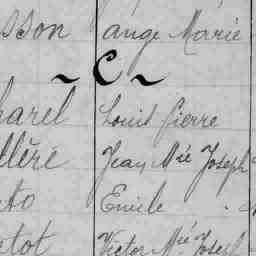 sson ange Marie
~ C ~
harel Louis Pierre
llère Jean Mie Joseph
to Emile
tot Victor Mie Josep